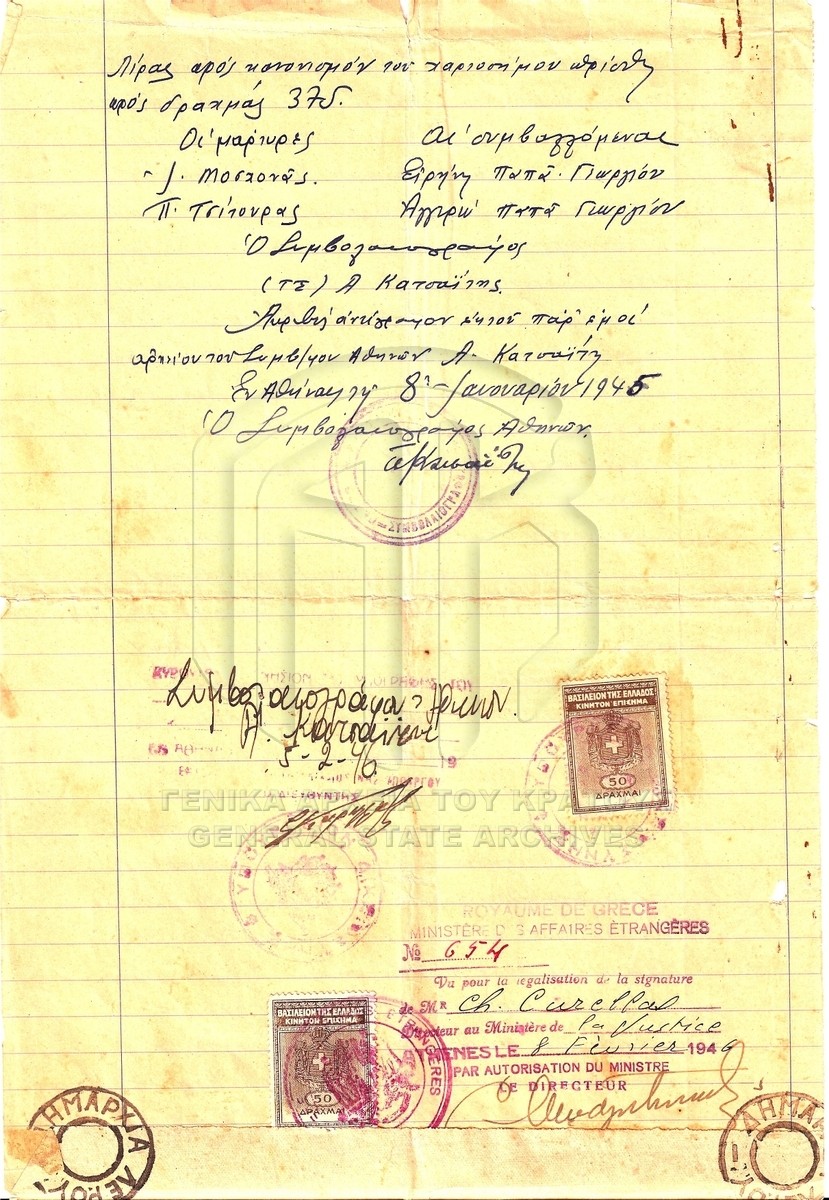 Λίρας πρός κανονισμόν του χαρτοσήμου ωρίσθη
πρός δραχμάς 375.
Οι μάρτυρες Αι συμβαλλόμεναι
J. Μοσχονάς. Ειρήνη Παπά Γεωργίου
Π. Τσίτουρας Αργυρώ παπά Γεωργίου
Ο Συμβολαιογράφος
(ΤΣ) Α Κατσαΐτης.
Ακριβές αντίγραφον εκ του παρ' εμοί
αρχείου του Συμβ/φου Αθηνών Α. Κατσαΐτη
Εν Αθήναις τη 8η Ιανουαρίου 1946
Ο Συμβολαιογράφος Αθηνών.
ΣΥΜΒΟΛΑΙΟΓΡΑΦ
Συμβολαιογράφου
Α. Κατσαΐτου
5-2-46
19
ΒΑΣΙΛΕΙΟΝ ΤΗΣ ΕΛΛΑΔΟΣ
ΚΙΝΗΤΟΝ ΕΠΙΣΗΜΑ
50
ΔΡΑΧΜΑΙ
ΓΕΝΙΚΑ ΑΡΧΕΙΑ ΤΟΥ ΚΡΑΤΟΥΣ
GENERAL STATE ARCHIVES
ROYAUME DE GRECE
MINISTÈRE DES AFFAIRES ÉTRANGÈRES
No 654
Vu pour la légalisation de la signature
de Mr Ch.
Directeur au Ministère de la Justice
ATHENES LE 8 Février 1946
PAR AUTORISATION DU MINISTRE
LE DIRECTEUR
ΒΑΣΙΛΕΙΟΝ ΤΗΣ ΕΛΛΑΔΟΣ
ΚΙΝΗΤΟΝ ΕΠΙΣΗΜΑ
50
ΔΡΑΧΜΑΙ
ΔΗΜΑΡΧΙΑ ΛΕΡΟΥ
ΔΗΜΑΡ